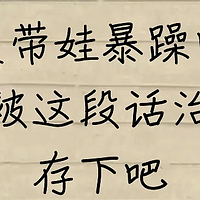 带娃暴躁
被这段话治
存下吧